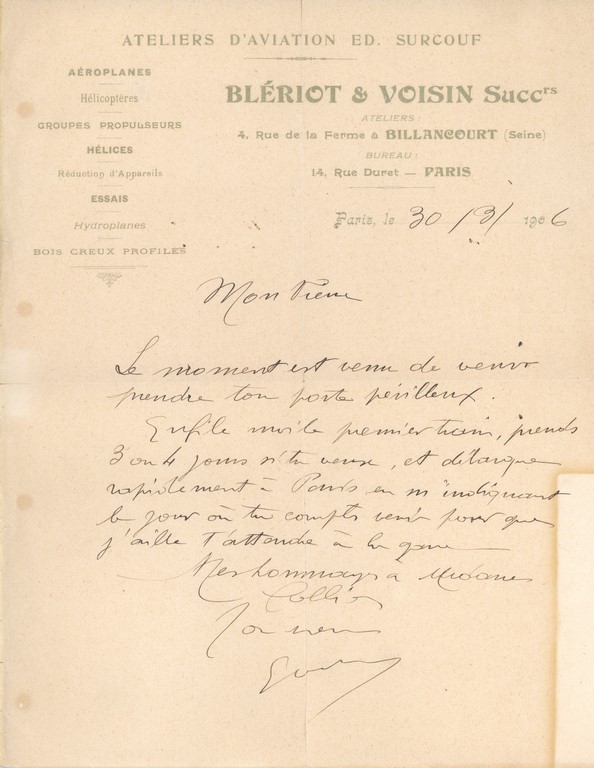 ATELIERS D'AVIATION ED. SURCOUF
AÉROPLANES
Hélicoptères
GROUPES PROPULSEURS
HÉLICES
Réduction d'Appareils
ESSAIS
Hydroplanes
BOIS CREUX PROFILÉS
BLÉRIOT & VOISIN Succrs
ATELIERS :
4, Rue de la Ferme à BILLANCOURT (Seine)
BUREAU :
14, Rue Duret — PARIS
Paris, le 30/3/1906
Mon
Le moment est venu de venir
prendre ton poste périlleux.
Enfile moi le premier train, prends
3 ou 4 jours si tu veux, et débarque
rapidement à Paris en m'indiquant
le jour où tu comptes venir pour que
j'aille t'attendre à la gare
Mes hommages à Madame